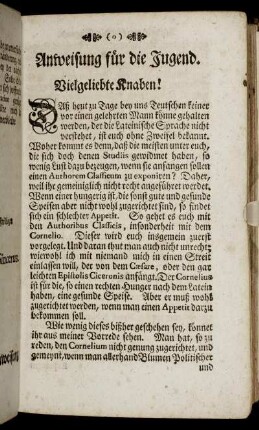 (0)
Anweisung für die Jugend.
Vielgeliebte Knaben!
Daß heut zu Tage bey uns Teutschen keiner
vor einen gelehrten Mann könne gehalten
werden, der die Lateinische Sprache nicht
verstehet, ist euch ohne Zweifel bekannt.
Woher kommt es denn, daß die meisten unter euch,
die sich doch denen Studiis gewidmet haben, so
wenig Lust dazu bezeugen, wenn sie anfangen sollen
einen Authorem Classicum zu exponiren? Daher,
weil ihr gemeiniglich nicht recht angeführet werdet.
Wenn einer hungerig ist, die sonst gute und gesunde
Speisen aber nicht wohl zugerichtet sind, so findet
sich ein schlechter Appetit. So gehet es euch mit
den Authoribus Classicis, insonderheit mit dem
Cornelio. Dieser wird euch insgemein zuerst
vorgelegt. Und daran thut man auch nicht unrecht;
wiewohl ich mit niemand mich in einen Streit
einlassen will, der von dem Cæsare, oder den gar
leichten Epistolis Ciceronis anfängt. Der Cornelius
ist für die, so einen rechten Hunger nach dem Latein
haben, eine gesunde Speise. Aber er muß wohl
zugerichtet werden, wenn man einen Appetit darzu
bekommen soll.
Wie wenig dieses bißher geschehen sey, könnet
ihr aus meiner Vorrede sehen. Man hat, so zu
reden, den Cornelium nicht genung zugerichtet, und
gemeynt, wenn man allerhand Blumen Politischer
und